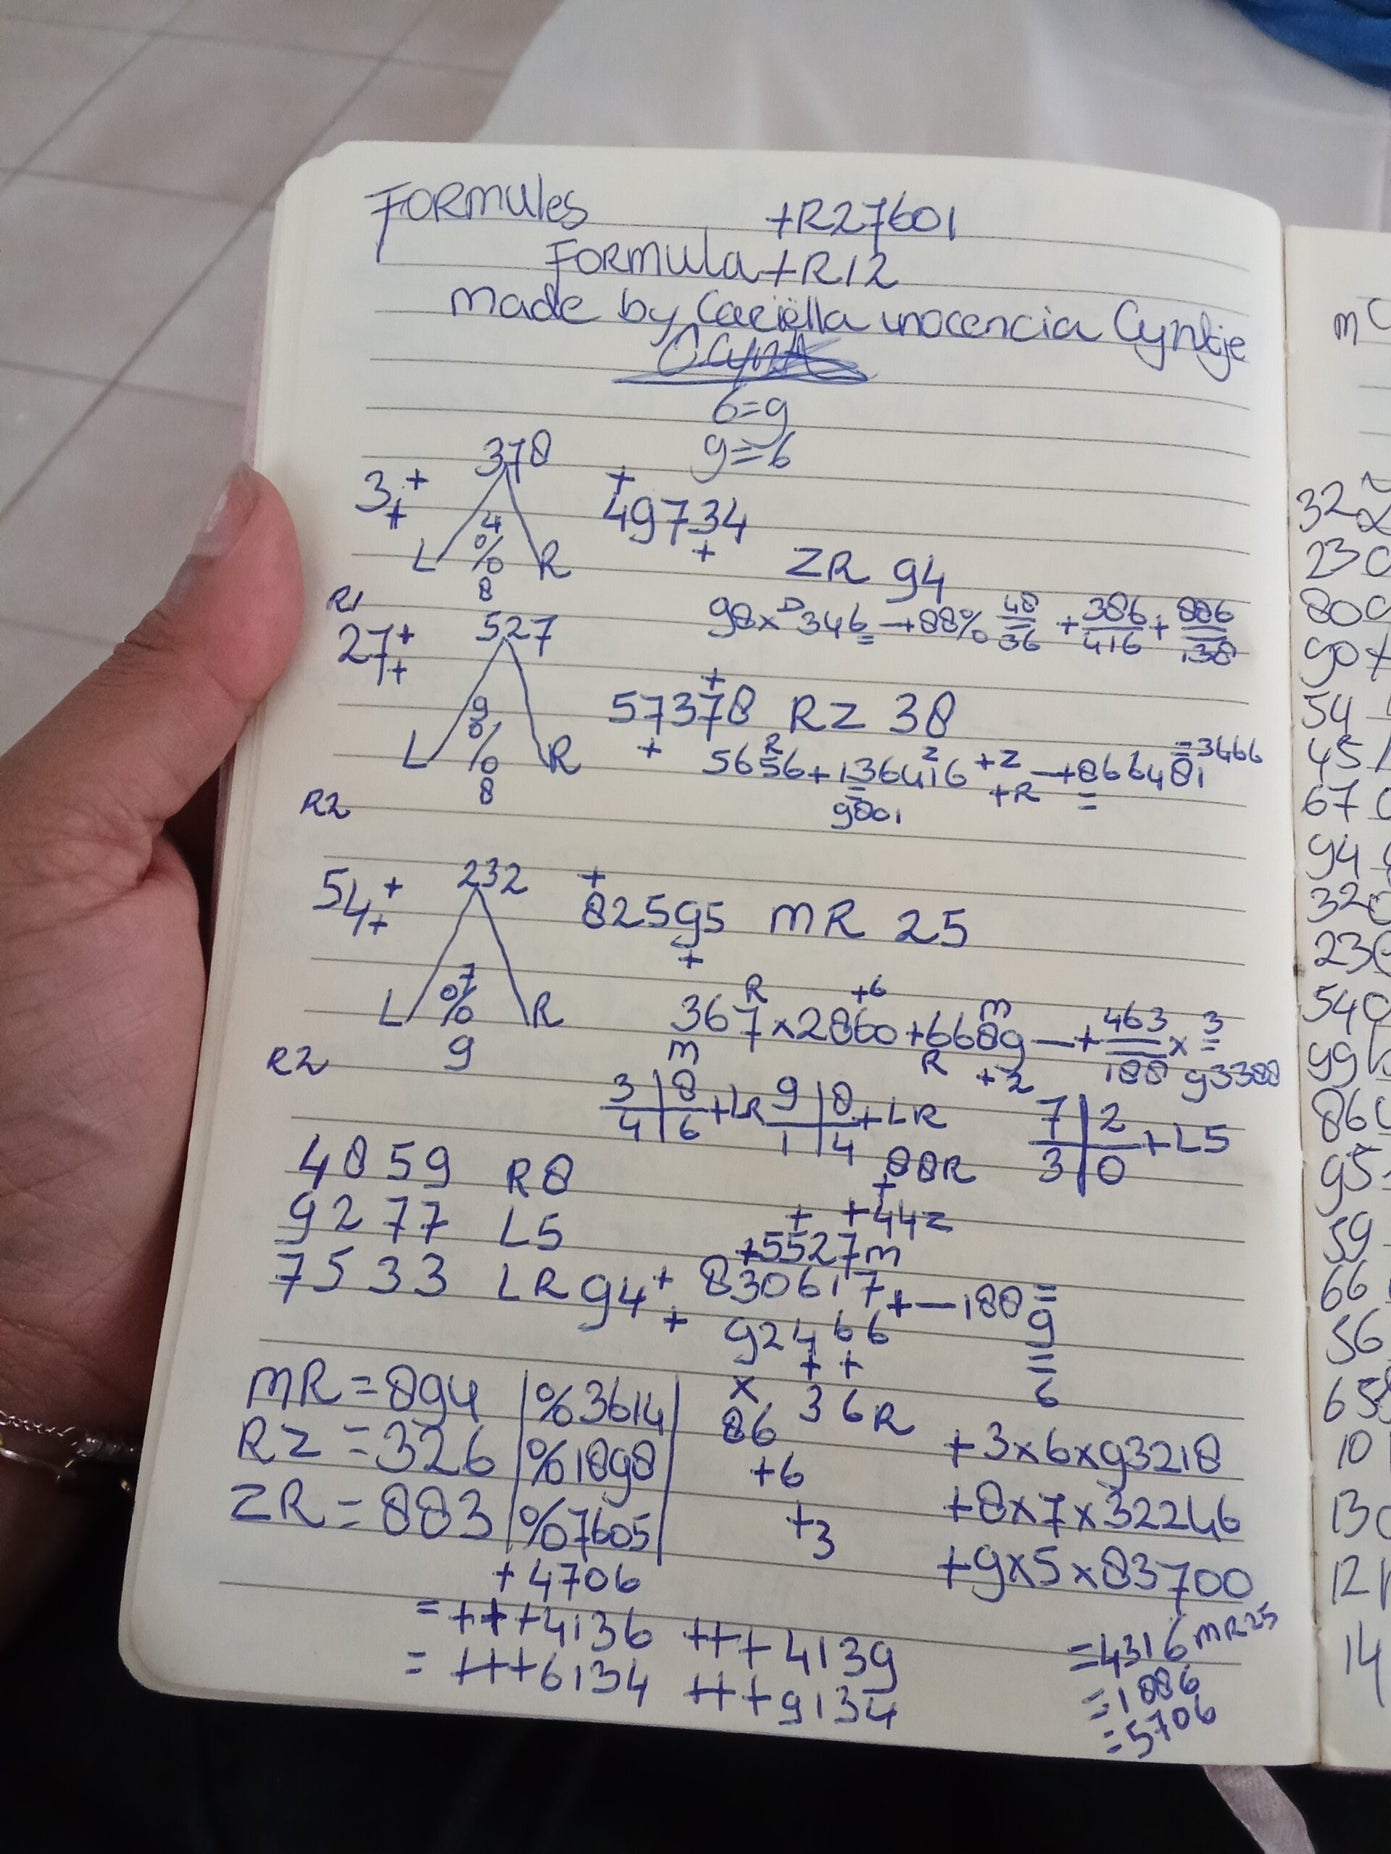 Formules +R27601
Formula+R12
made by Cariëlla inocencia Cyntje
6=9
9=6
3++ 378 +49734+
4%8
L R ZR 94
R1 98x D346 → 88% 48/36 + 386/416 + 886/138
27++ 527 57378 RZ 38
9%8
L R 5656+136416 +Z +R → 866481 =3466
9801
R2
54++ 232 +82595+ MR 25
7%9
L R 367x2860+6689 → +463/188 x 3
R +6 m
m R +2 93388
R2
3|8 +LR 9|8 +LR 7|2 +L5
4|6 1|4 3|0
88R
4859 R8
+44z
9277 L5 +5527m
7533 LR 94++ 830617 +—188=
92466 9
=
x 36R 6
MR=894 |%3614| 86
RZ=326 |%1898| +6 +3x6x93218
ZR=883 |%7605| +3 +8x7x32246
+4706 +9x5x83700
=+++4136 +++4139 =4316 MR25
=+++6134 +++9134 =1886
=5706
m
322
230
54
67
94
320
540
59
66
56
65
10
13
12
14